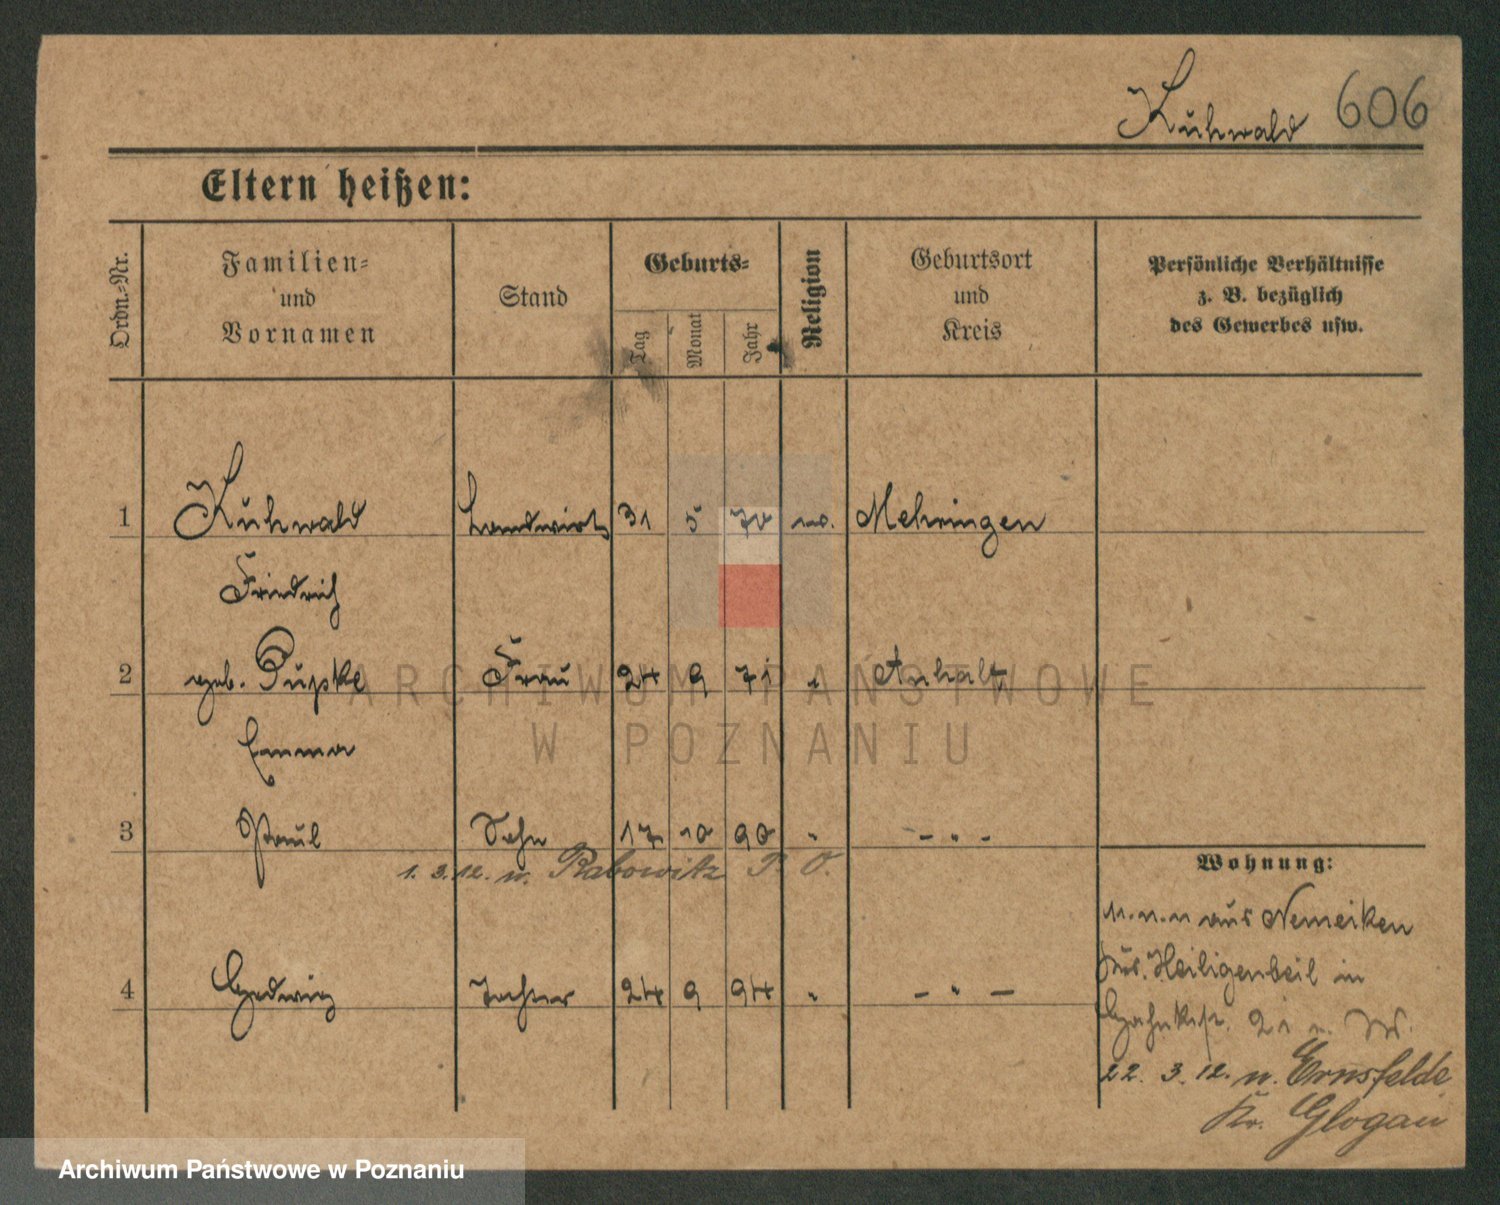 Kuhwald 606
Eltern heißen:
Ordn.-Nr.
Familien-
und
Vornamen
Stand
Geburts-
Tag
Monat
Jahr
Religion
Geburtsort
und
Kreis
Persönliche Verhältnisse
z. B. bezüglich
des Gewerbes usw.
1 Kuhwald Landwirt 31 5 70 Mehringen
Friedrich
2 geb. Pupke Frau 24 9 71 " Anhalt
Emma
3 Paul Sohn 17 10 90 " - " -
1. 3. 12. n. Rabowitz P. O.
Wohnung:
aus Nemeiken
Heiligenbeil in
4 Hedwig Tochter 24 9 94 " - " -
21
22. 3. 12. n. Ernsfelde
Kr. Glogau
ARCHIWUM PAŃSTWOWE
W POZNANIU
Archiwum Państwowe w Poznaniu